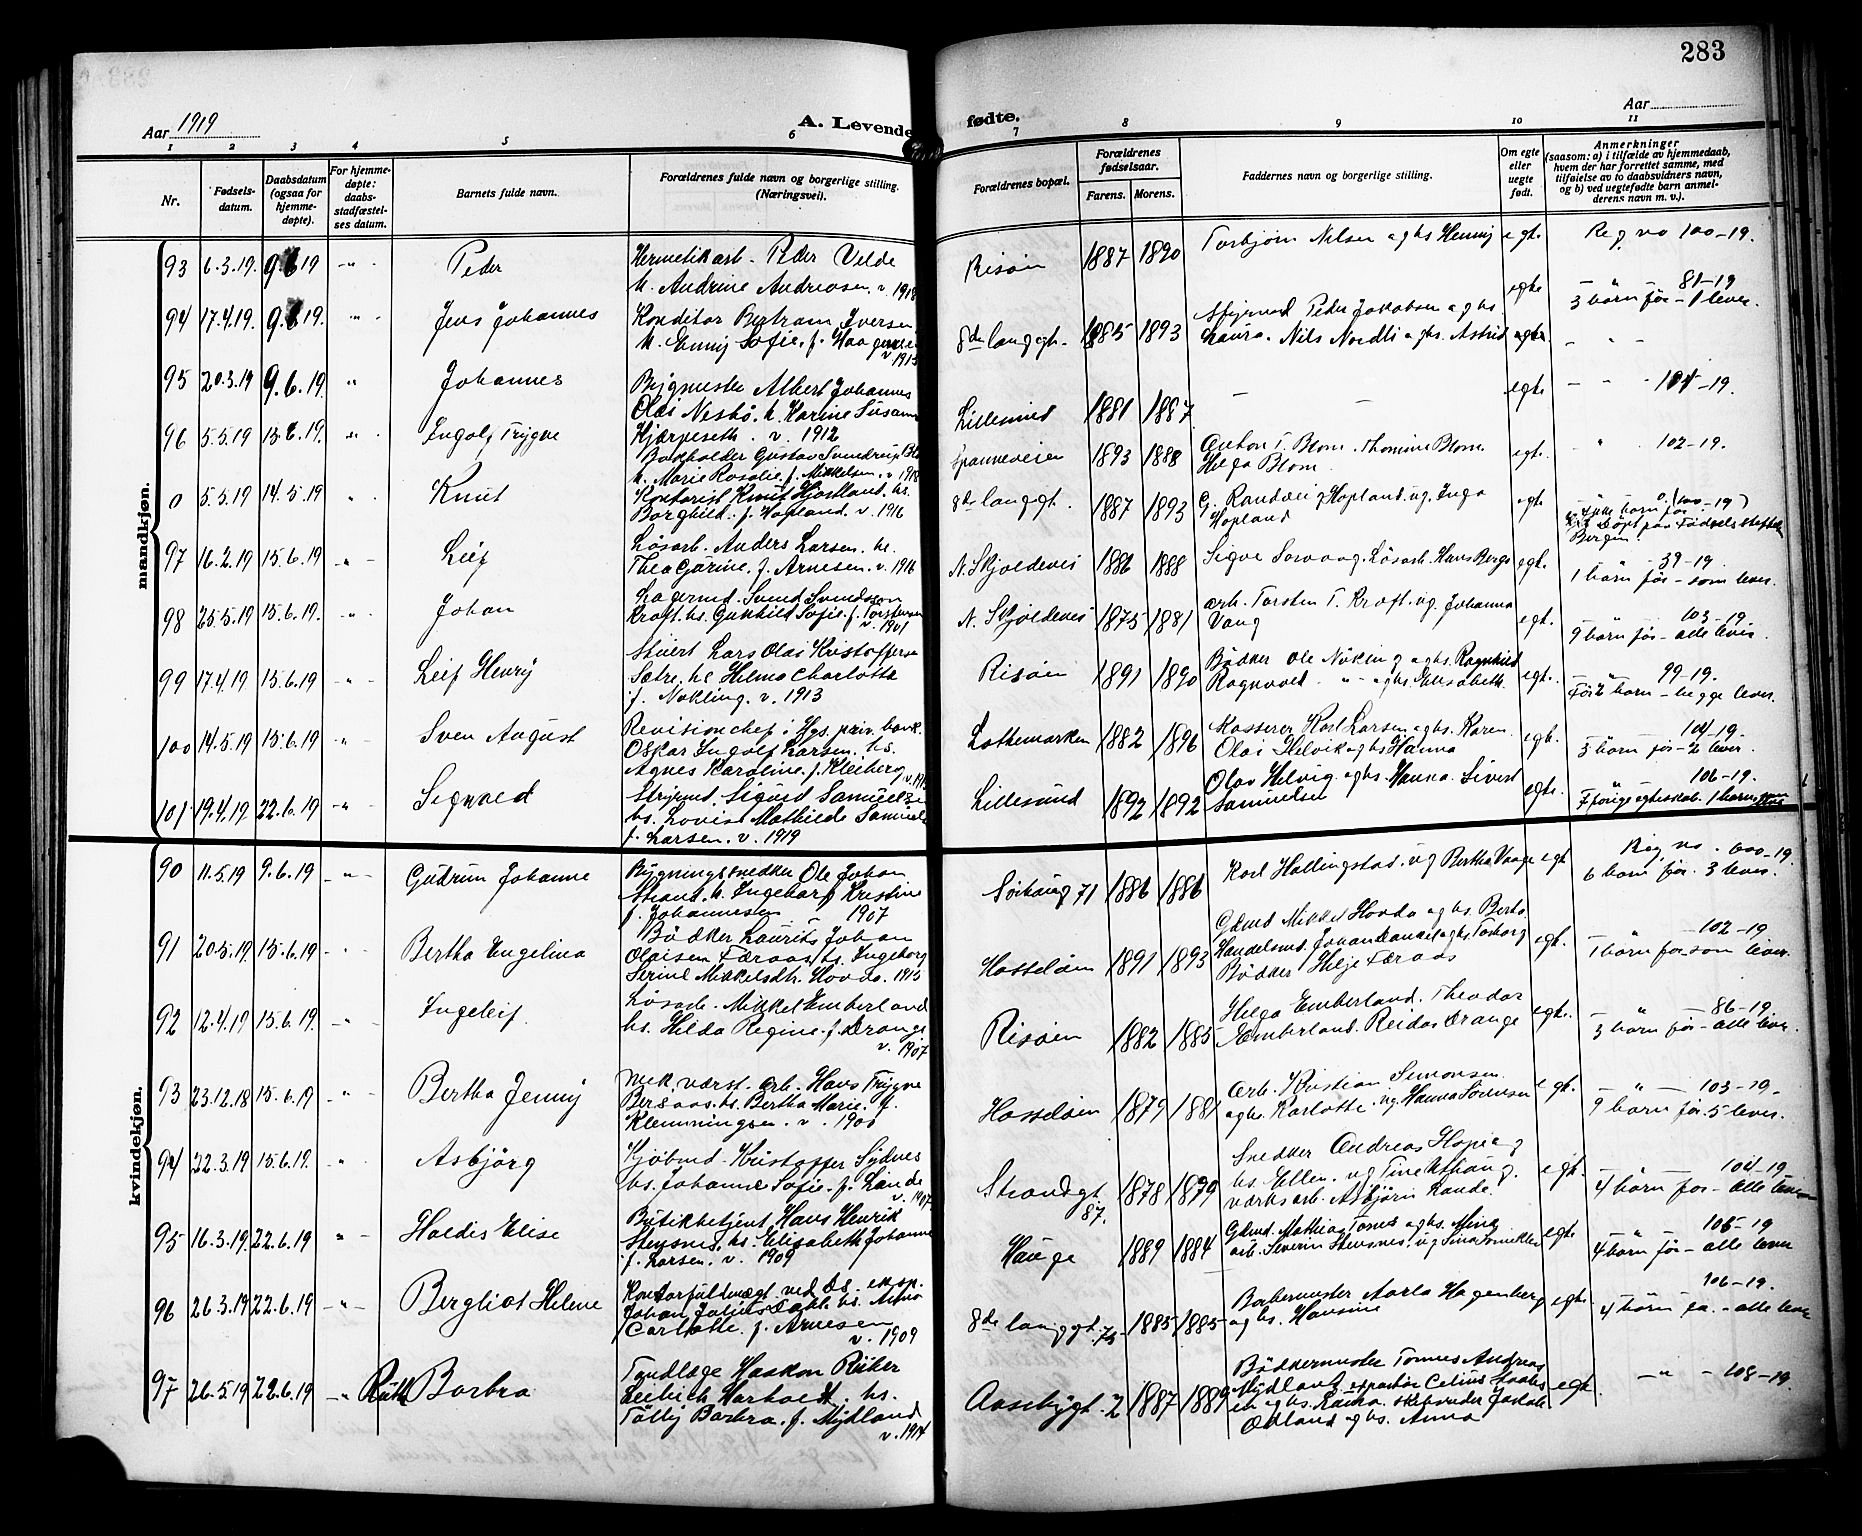 283
Aar 1919
A. Levende fødte.
Aar
1 2 3 4 5 6 7 8 9 10 11
Nr.
Fødsels-datum.
Daabsdatum (ogsaa for hjemme-døpte).
For hjemme-døpte: daabs-stadfæstel-ses datum.
Barnets fulde navn.
Forældrenes fulde navn og borgerlige stilling. (Næringsvei).
Forældrenes bopæl.
Forældrenes fødselsaar.
Farens. Morens.
Faddernes navn og borgerlige stilling.
Om egte eller uegte født.
Anmerkninger
(saasom: a) i tilfælde av hjemmedaab, hvem der har forrettet samme, med tilføielse av to daabsvidners navn, og b) ved uegtefødte barn anmel-derens navn m. v.).
mandkjøn.
93 6.3.19. 9.6.19 Peder
Hermetikarb. Peder Velde
h. Andrine Andreasen. v. 1918
Risøen 1887 1890 Torbjørn Nilsen og hs Henny egt. Reg no 100-19.
94 17.4.19. 9.6.19. Jens Johannes
Konditor Bertram Iversen
h. Emmy Sofie. f.
8de langgt. 1885 1893 Peder Jakobsen og hs
Laura. Nils Nordli og hs. Astrid
egte 81-19
3 børn før - 1 lever.
95 20.3.19 9.6.19 Johannes
Bygmester Albert Johannes
Olai Nesbø. h. Karine Susanne
v. 1912
Lillesund 1881 1887 egte 101-19.
96 5.5.19 13.6.19. Ingolf Trygve
Bokholder Gustav Svendrup Blom
h. Marie Rosalie f. Mikkelsen. v. 1918
Spanneveien 1893 1888 Anton T. Blom. Thomine Blom.
Helga Blom.
egt. 102-19.
0 5.5.19 14.5.19 Knut
Kontorist Knut Hjortland. hs.
Borghild. f. Hopland. v. 1916
8de langgt. 1887 1893 G. Randæi Hopland og Inga
Hopland
egt 0. (100-19)
døpt paa Fødselsstiftelsen
Bergen.
97 16.2.19 15.6.19. Leif
Løsarb. Anders Larsen. hs.
Thea Gjørine. f. Arnesen. v. 1916
N. Skjoldevei 1886 1888 Sigve Sorvaag. Løsarb. Hans Berge egt. 39-19.
1 børn før - som lever.
98 25.5.19 15.6.19. Johan
Lagermd. Svend Svendsen
Kraft. hs. Gunhild Sofie. f. Torstensen
v. 1901
N. Skjoldevei 1875 1881 arb. Torsten T. Kraft. og. Johanna
Vang
egt. 103-19.
9 børn før - alle lever.
99 17.4.19 15.6.19 Leif Henry
Stuert Lars Olai Kristoffersen
Sætre. hs Helma Charlotta
f. Nøkling. v. 1913
Risøen 1891 1890 Bødker Ole Nøkling og hs. Ragnhild
Ragnvald og hs. Elisabeth.
egt. 99-19.
Før 2 børn - begge lever.
100 14.5.19 15.6.19 Sven August
Revisionchef i Hgs. priv. bank.
Oskar Ingolf Larsen. hs.
Agnes Karoline. f. Kleiberg
Lothemarken 1882 1896 Kasserer Karl Larsen og hs. Karen.
Olai Helvik og hs Hanna
egt. 104-19.
3 børn før - 2 lever.
101 19.4.19 22.6.19 Sigvald
Styrmd. Sigurd Samuelsen
hs. Lovise Mathilde Samuels
f. Larsen. v. 1919
Lillesund 1892 1892 Olav Helvig. og hs. Hanna. Sivert
Samuelsen
egte. 106-19.
I forrige egteskab. 1 barn.
kvindekjøn.
90 11.5.19 9.6.19 Gudrun Johanne
Bygningssnedker Ole Johan
Strand. h. Ingeborg Kristine
f. Johannesen 1907
Sørhaug 71 1886 1886 Karl Hallingstad. og Bertha Vaage egt Reg no. 100-19.
6 børn før. 3 lever.
91 20.5.19 15.6.19 Bertha Engelina
Bødker Laurits Johan
Olaisen Færaas. hs. Ingeborg
Serine Mikkelsdtr. Hovda. 1915
Hasseløen 1891 1893 Gdmd Mikkel Hovda og hs. Berta.
Handelsmd. Johan og hs Torborg
Bødker Helje Færaas
egt. 102-19
1 børn før som lever.
92 12.4.19 15.6.19. Ingeleif.
Løsarb. Mikkel Emberland
hs. Hilda Regine. f. Drange
v. 1907
Risøen 1882 1885 Helga Emberland. Theodor
Emberland. Reidar Drange
egte. 86-19.
3 børn før - alle lever.
93 23.12.18 15.6.19 Bertha Jenny
Mek. værst. arb. Hans Trygve
Bersaas. hs. Bertha Marie. f.
Klemmingsen. v. 1900
Hasseløen 1879 1881 Arb. Kristian Simonsen.
og hs. Karlotte. og. Hanna Sørensen
egt. 103-19.
9 børn før. 5 lever.
94 22.3.19 15.6.19. Asbjørg
Kjøbmd. Kristoffer Sydnes
hs. Johanne Sofie. f. Lande
v. 1907
Strandgt. 87. 1878 1879 Snedker Andreas Hopie og
hs. Ellen. og Tine
værksarb. Asbjørn Rande.
egt. 104-19
4 børn før - alle lever
95 16.3.19 22.6.19 Haldis Elise
Butikbetjent Hans Henrik
Stensnes. hs. Elisabeth Johanne
f. Larsen. v. 1909
Hauge 1889 1884 Gdmd. Mathias Tornes og hs. Mina
arb. Severin Stensnes. og Sina
egte 105-19
4 børn før - alle lever
96 26.3.19 22.6.19 Bergliot Helene
Kontorfuldmægt. ved Ds. eksp.
Johan Julius Dahl. hs. Anna
Carlotte. f. Arnesen
v. 1909
8de langgt. 75 1885 1885 Barbermester Aarla Hagenberg
og hs. Hansine
egte 106-19.
4 børn før. - alle lever
97 26.5.19 22.6.19 Ruth Barbra
Tandlæge Haakon Riber
Harboldt. hs.
Tolly Barbra. f. Mydland
v. 1914
Aasebygt. 2 1887 1889 Bødkermester Tomas Andreas
Mydland. Celius
og hs. Skibsreder
Ødland og hs. Anna
egt. 108-19.